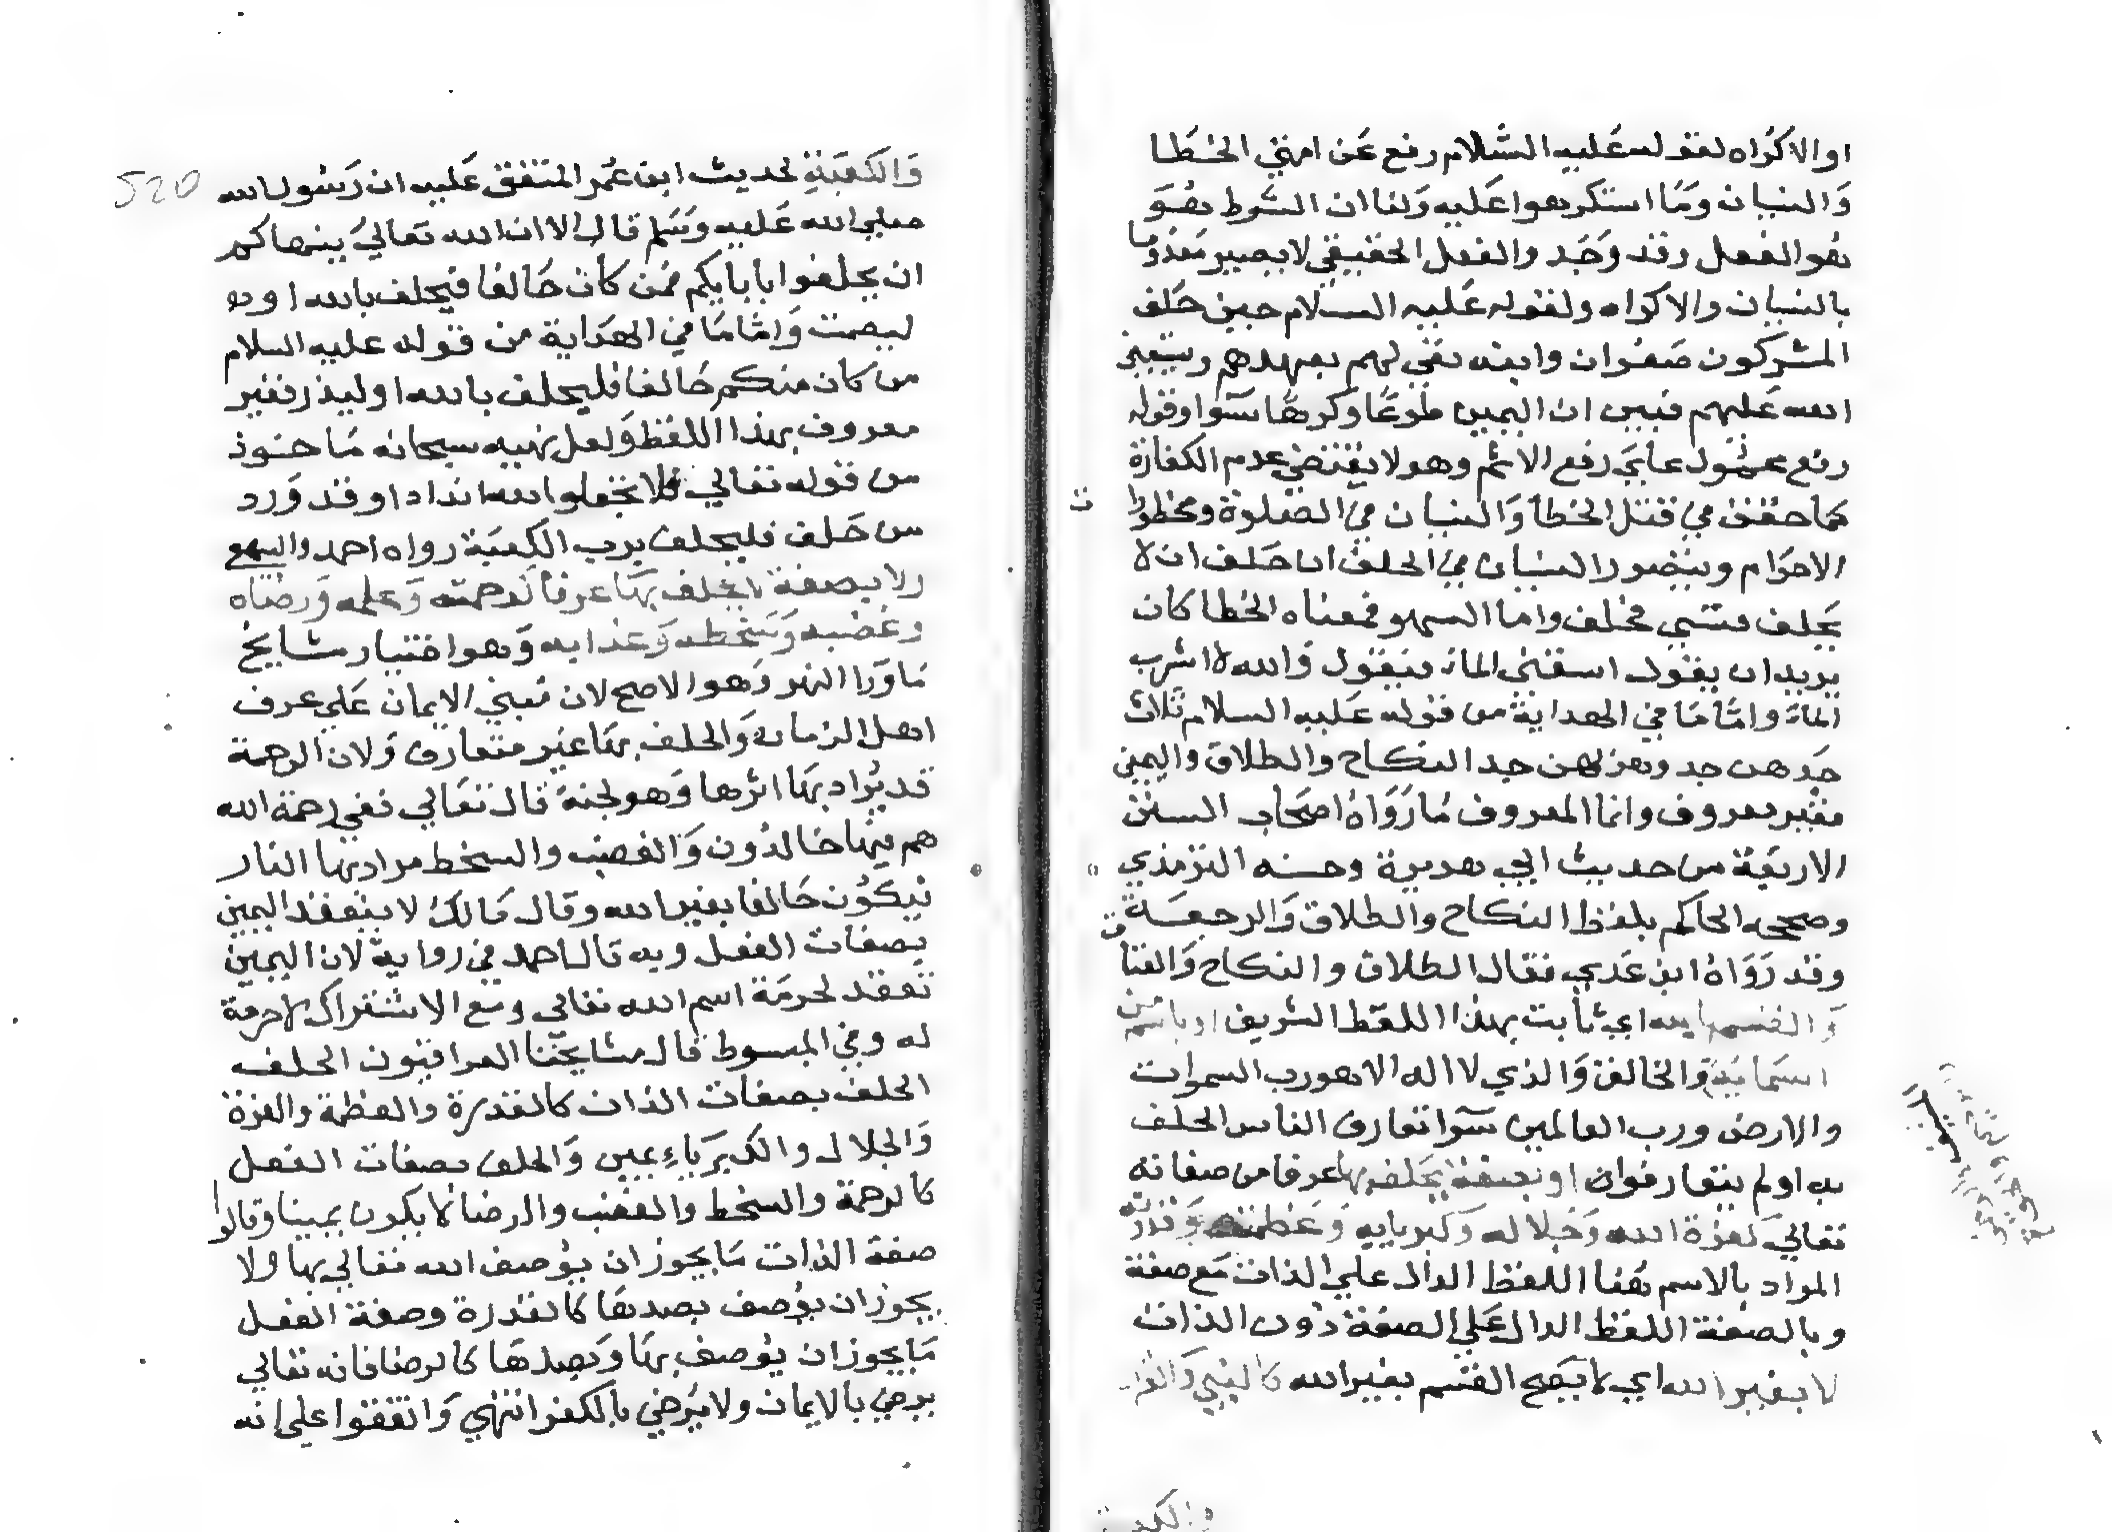 او الاكراه لقوله عليه السلام رفع عن امتي الخطا
والنسيان وما استكرهوا عليه ولنا ان الشرط هو
هو الفعل وقد وجد والفعل الحقيقي لا يصير معدوما
بالنسيان والاكراه ولقوله عليه السلام حين حلف
المشركون صفوان وابنه نفي لهم بعهدهم ونستعين
الله عليهم فبين ان اليمين طوعا وكرها سوا وقوله
رفع محمول علي رفع الاثم وهو لا يقتضي عدم الكفارة
كما حقق في قتل الخطا والنسيان في الصلوة ومحظورات
الاحرام ويتصور النسيان في الحلف ان حلف ان لا
يحلف فنسي فحلف واما السهو فمعناه الخطا كان
يريد ان يقول اسقني الماء فيقول والله لا اشرب
الماء واما ما في الهداية من قوله عليه السلام ثلاث
جدهن جد وهزلهن جد النكاح والطلاق واليمين
فغير معروف وانما المعروف ما رواه اصحاب السنن
الاربعة من حديث ابي هريرة وحسنه الترمذي
وصححه الحاكم بلفظ النكاح والطلاق والرجعة
وقد رواه ابن عدي فقال الطلاق والنكاح والعتاق
والقسم بالله اي ثابت بهذا اللفظ الشريف او باسم من
اسمائه والخالق والذي لا اله الا هو رب السموات
والارض ورب العالمين سوا تعارف الناس الحلف
به او لم يتعارفوا او بصفة يحلف بها عرفا من صفاته
تعالي كعزة الله وجلاله وكبريايه وعظمته وقدرته
المراد بالاسم هنا اللفظ الدال علي الذات مع صفة
وبالصفة اللفظ الدال علي الصفة دون الذات
لا بغير الله اي لا يصح القسم بغير الله كالنبي والقران
والكعبة
520
والكعبة لحديث ابن عمر المتفق عليه ان رسول الله
صلي الله عليه وسلم قال الا ان الله تعالي ينهاكم
ان تحلفوا بابايكم فمن كان حالفا فيحلف بالله او
ليصمت واما ما في الهداية من قوله عليه السلام
من كان منكم حالفا فليحلف بالله او ليذر فغير
معروف بهذا اللفظ ولعل نهيه سبحانه ماخوذ
من قوله تعالي فلا تجعلوا لله اندادا وقد ورد
من حلف فليحلف برب الكعبة رواه احمد والبيهقي
ولا بصفة لا يحلف بها عرفا كرحمته وعلمه ورضاه
وغضبه وسخطه وعذابه وهو اختيار مشايخ
ما ورا النهر وهو الاصح لان مبني الايمان علي عرف
اهل الزمان والحلف بها غير متعارف ولان الرحمة
قد يراد بها اثرها وهو الجنة قال تعالي ففي رحمة الله
هم فيها خالدون والغضب والسخط مراد بها النار
فيكون حالفا بغير الله وقال مالك لا ينعقد اليمين
بصفات الفعل وبه قال احمد في رواية لان اليمين
تعقد لحرمة اسم الله تعالي ومع الاشتراك لا حرمة
له وفي المبسوط قال مشايخنا العراقيون الحلف
الحلف بصفات الذات كالقدرة والعظمة والعزة
والجلال والكبرياء يمين والحلف بصفات الفعل
كالرحمة والسخط والغضب والرضا لا يكون يمينا وقالوا
صفة الذات ما يجوز ان يوصف الله تعالي بها ولا
يجوز ان يوصف بضدها كالقدرة وصفة الفعل
ما يجوز ان يوصف بها وبضدها كالرضا فانه تعالي
يرضي بالايمان ولا يرضي بالكفر انتهي واتفقوا علي انه